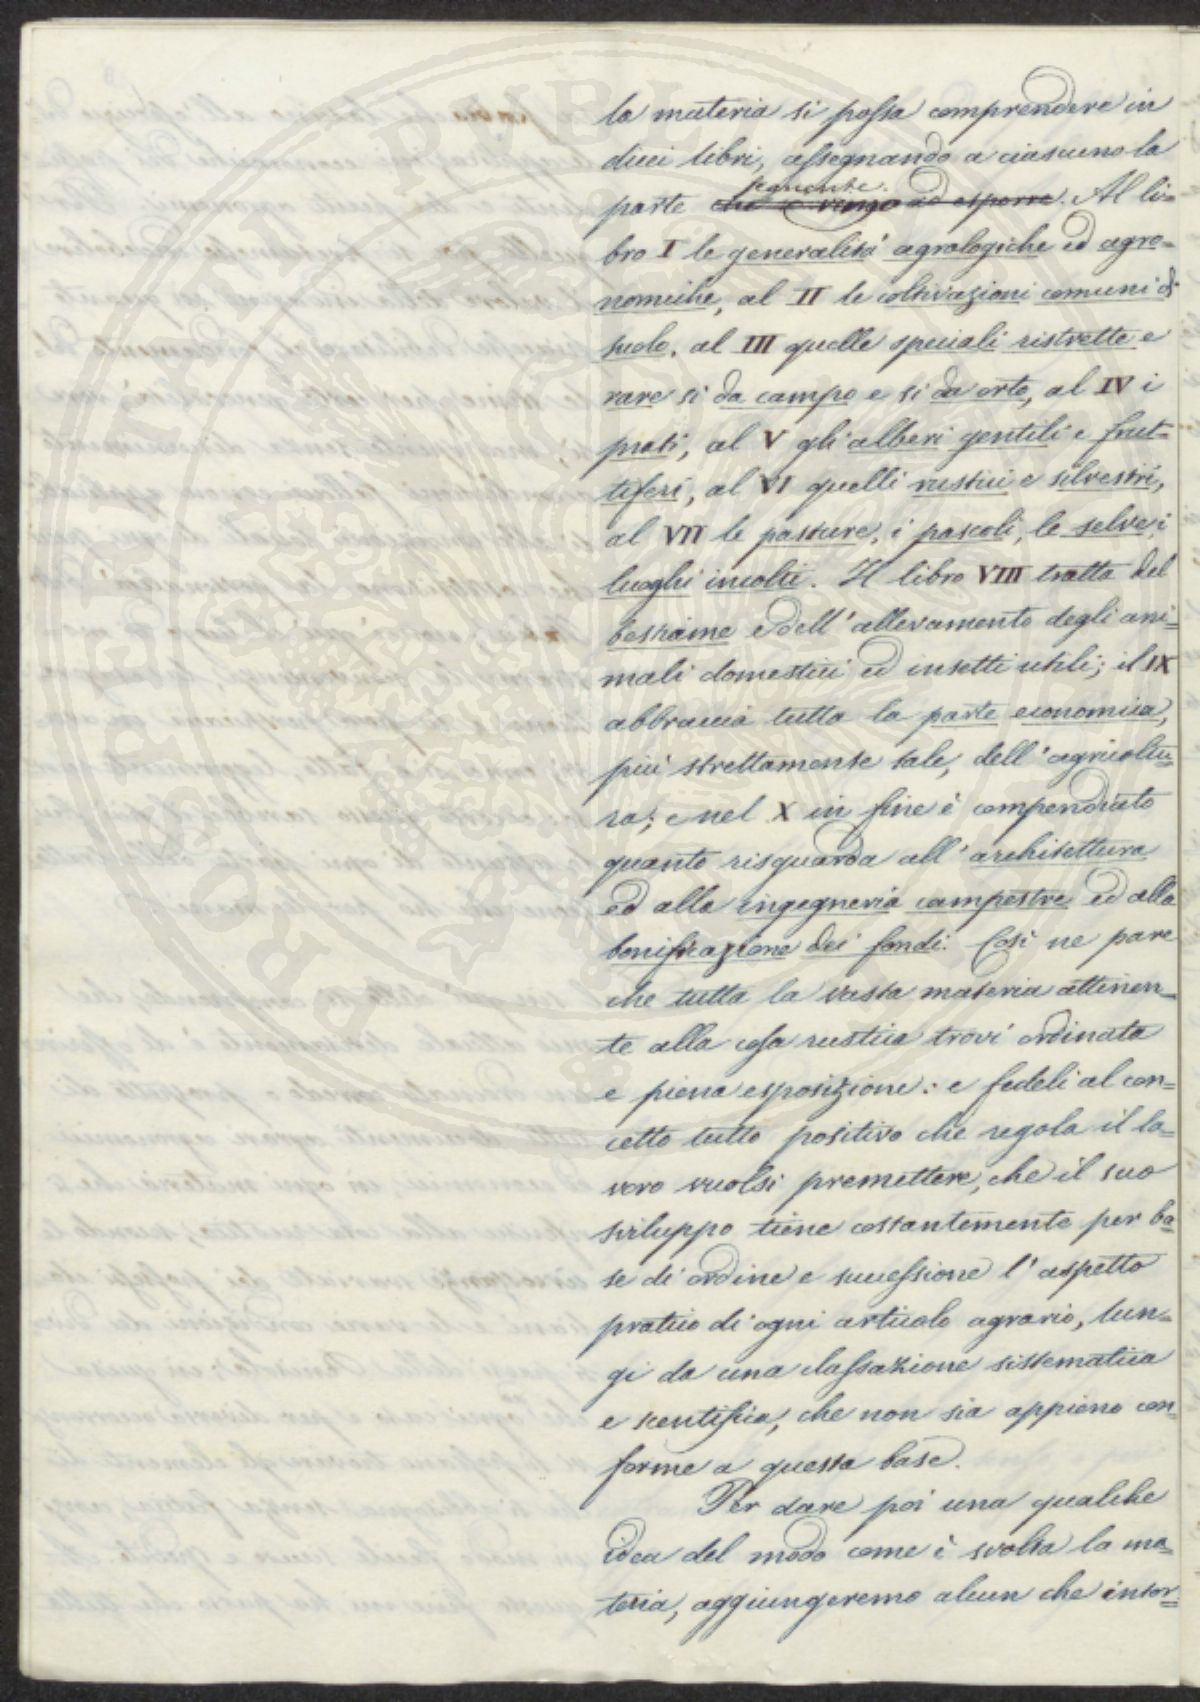 la materia si possa comprendere in
dieci libri, assegnando a ciascuno la
seguente.
parte che vengo ad esporre. Al li=
bro I le generalità agrologiche ed agro=
nomiche, al II le coltivazioni comuni di
suolo, al III quelle speciali ristrette e
rare sì da campo e sì da orto, al IV i
prati, al V gli alberi gentili e frut=
tiferi, al VI quelli rustici e silvestri,
al VII le pasture, i pascoli, le selve, i
luoghi incolti. Il libro VIII tratta del
bestiame e dell'allevamento degli ani=
mali domestici ed insetti utili; il IX
abbraccia tutta la parte economica,
più strettamente tale, dell'agricoltu=
ra; e nel X in fine è compendiato
quanto risguarda all'architettura
ed alla ingegneria campestre ed alla
bonificazione dei fondi. Così ne pare
che tutta la vasta materia attinen=
te alla cosa rustica trovi ordinata
e piena esposizione: e fedeli al con=
cetto tutto positivo che regola il la=
voro vuolsi premettere, che il suo
sviluppo tiene costantemente per ba=
se di ordine e successione l'aspetto
pratico di ogni articolo agrario, lun=
gi da una classazione sistematica
e scentifica, che non sia appieno con=
forme a questa base.
Per dare poi una qualche
idea del modo come è svolta la ma=
teria, aggiungeremo alcun che intor=